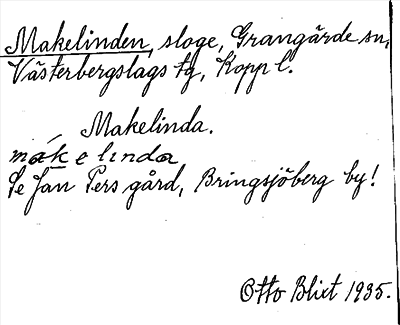 Makelinden, sloge, Grangärde sn,
Västerbergslags tg, Kopp l.
Makelinda.
mák e lında
Se Jan Pers gård, Bringsjöberg by!
Otto Blixt 1935.